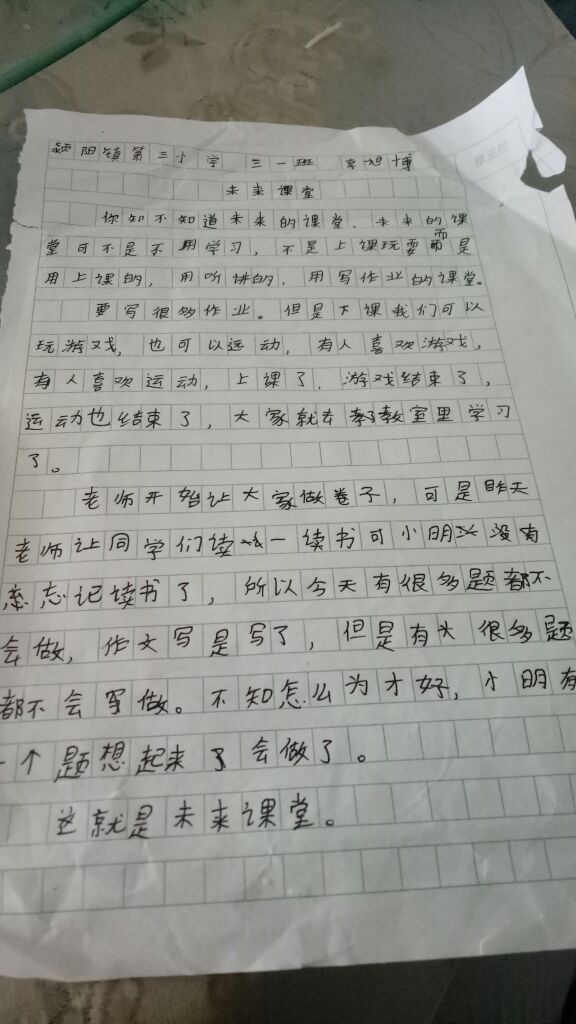 颍阳镇第三小学 三一班 旭博
未来课堂
你知不知道未来的课堂，未来的课
堂可不是不用学习，不是上课玩耍而是
用上课的，用听讲的，用写作业的课堂。
要写很多作业。但是下课我们可以
玩游戏，也可以运动，有人喜欢游戏，
有人喜欢运动，上课了，游戏结束了，
运动也结束了，大家就去教室里学习
了。
老师开始让大家做卷子，可是昨天
老师让同学们读一读书可小明没有
忘记读书了，所以今天有很多题都不
会做，作文写是写了，但是有很多题
都不会做。不知怎么为才好，小明有
一个题想起来了会做了。
这就是未来课堂。